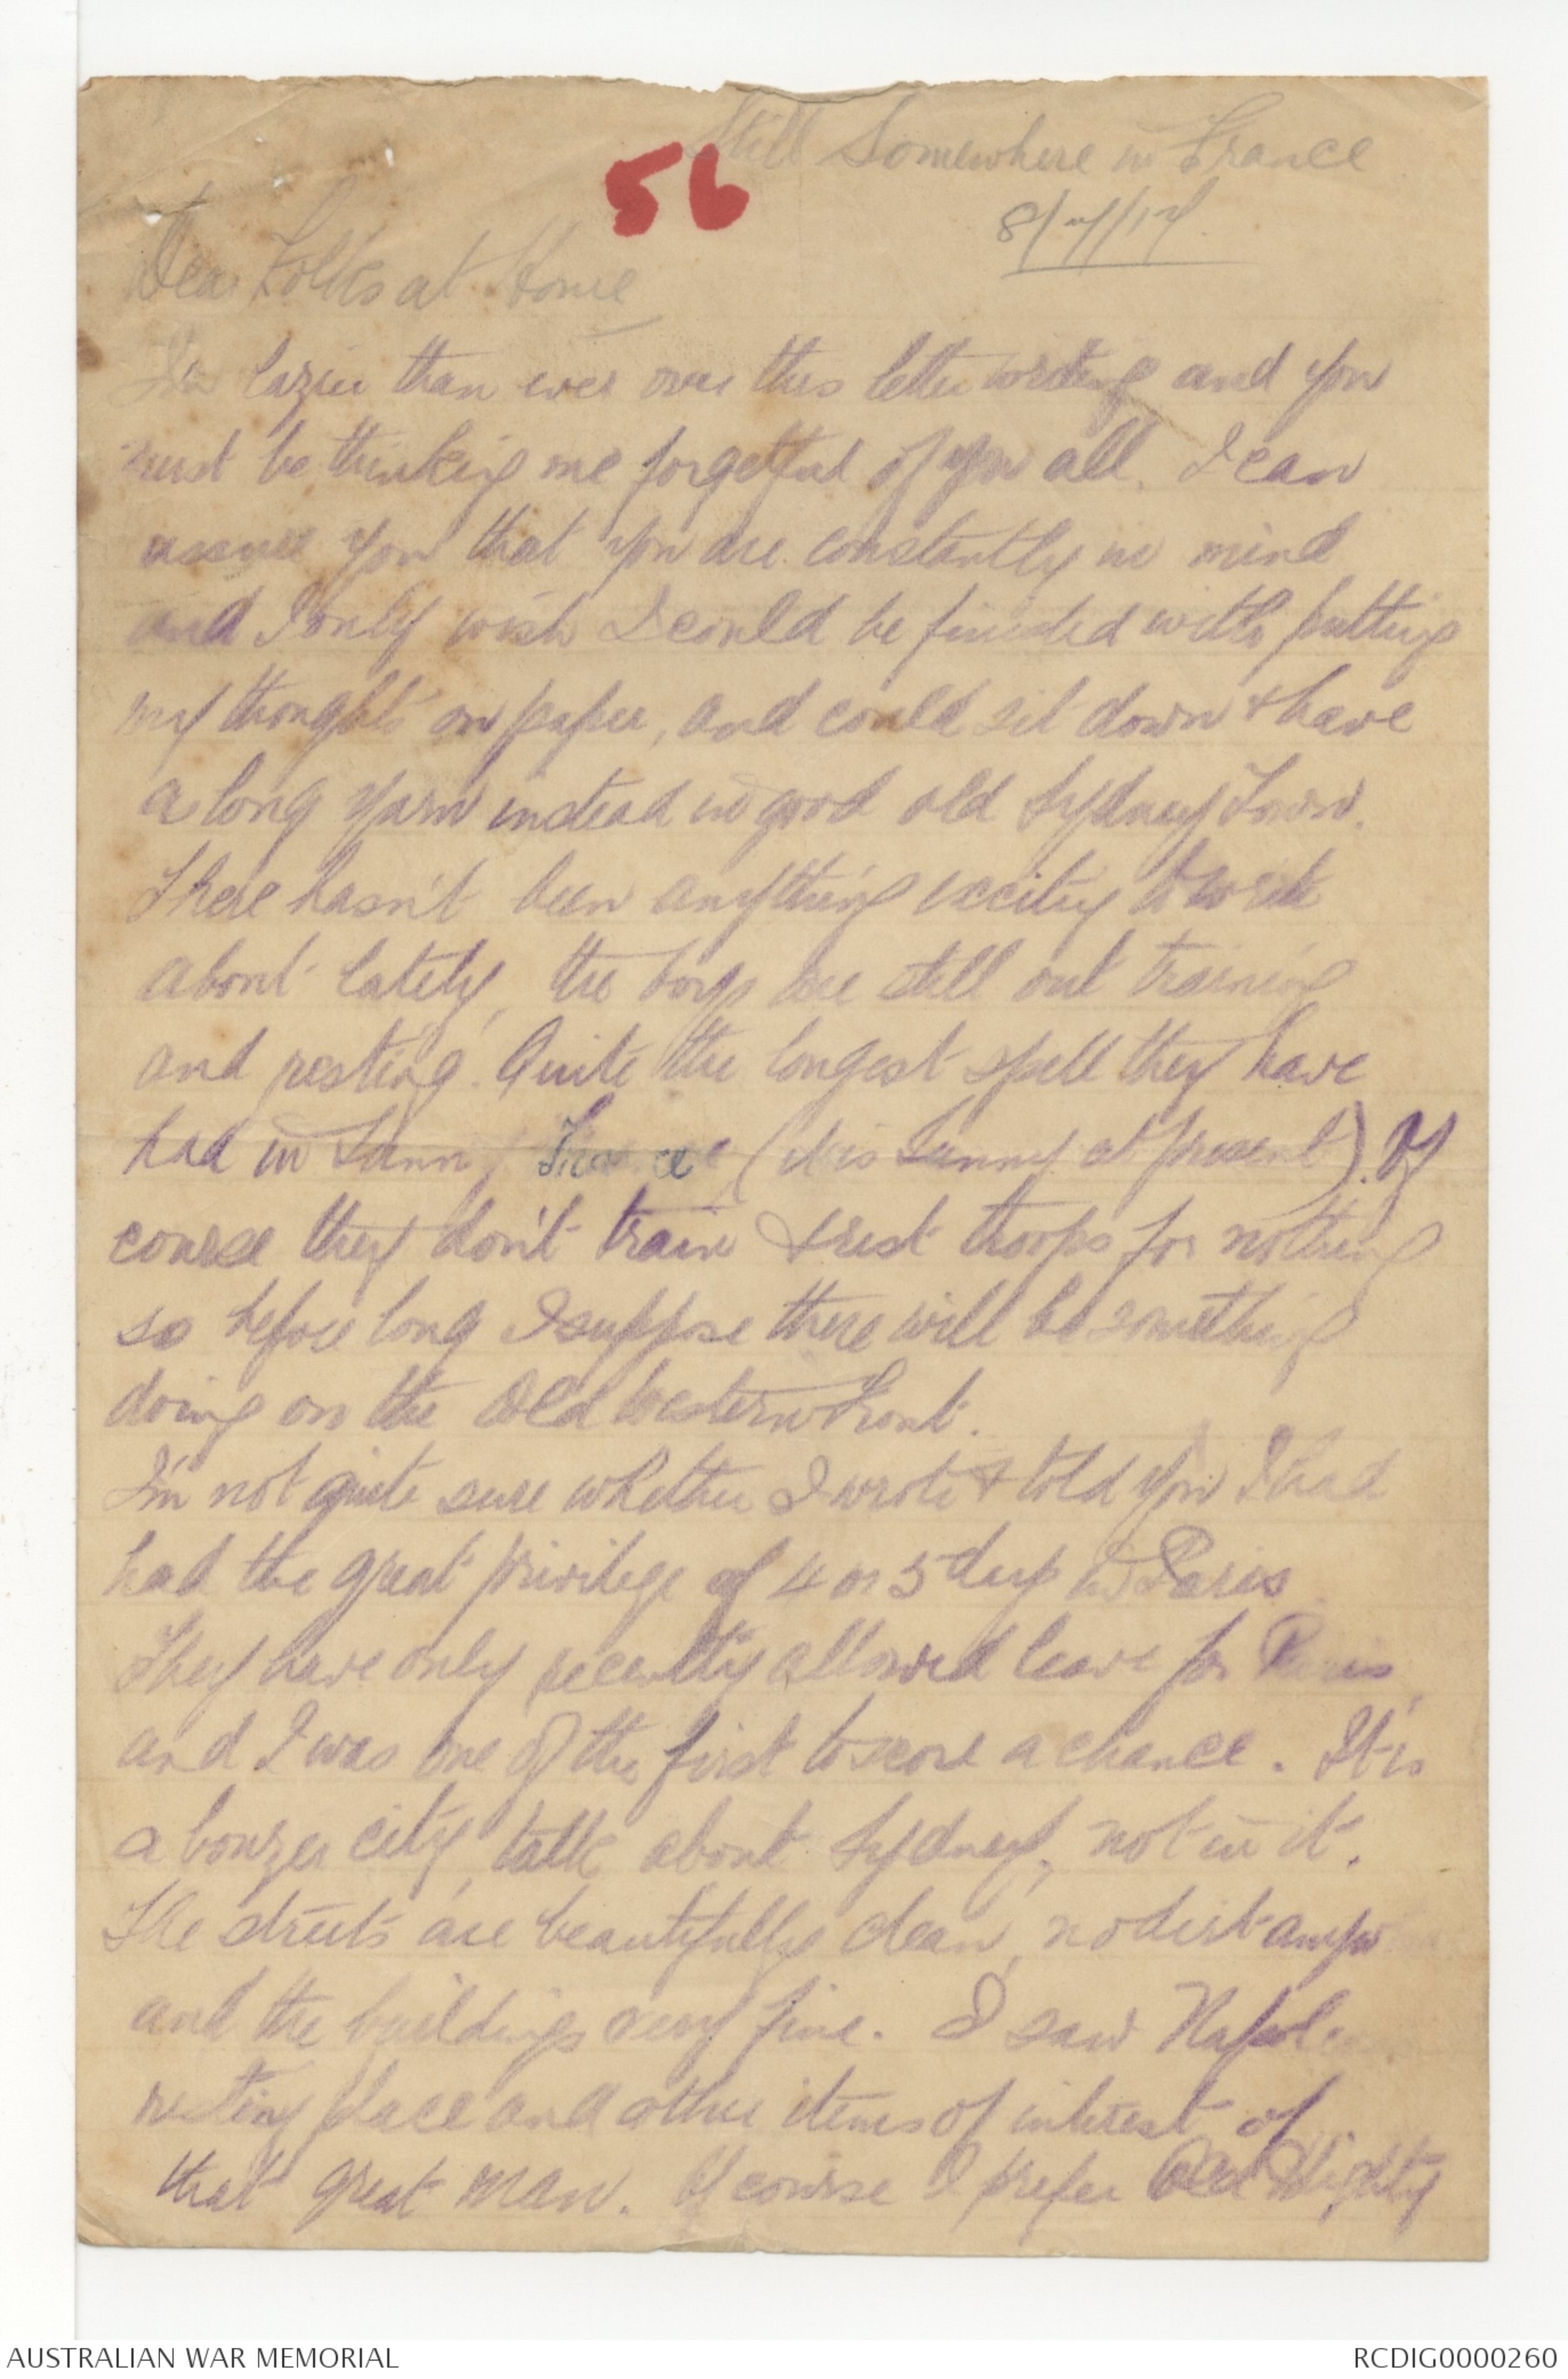 Still Somewhere in France
56
8/7/17.
Dear Folks at Home
I'm lazier than ever over this letter writing and you
must be thinking me forgetful of you all. I can
assure you that you are constantly in mind
and I only wish I could be finished with putting
my thoughts on paper, and could sit down & have
a long yarn instead in good old Sydney Town.
There hasn't been anything exciting to write
about lately, the boys are still out training
and resting. Quite the longest spell they have
had in Sunny France (it is Sunny at present). Of
course they don't train & rest troops for nothing
so before long I suppose there will be something
doing on the Old Western Front.
I'm not quite sure whether I wrote & told you I had
had the great privilege of 4 or 5 days in Paris
They have only recently allowed leave for Paris,
and I was one of the first to score a chance. It is
a bonzer city, talk about Sydney, not in it.
The streets are beautifully clean, no dirt
and the buildings very fine. I saw
resting place and other items of interest of
that great man. Of course I prefer Old Blighty
AUSTRALIAN WAR MEMORIAL
RCDIG0000260